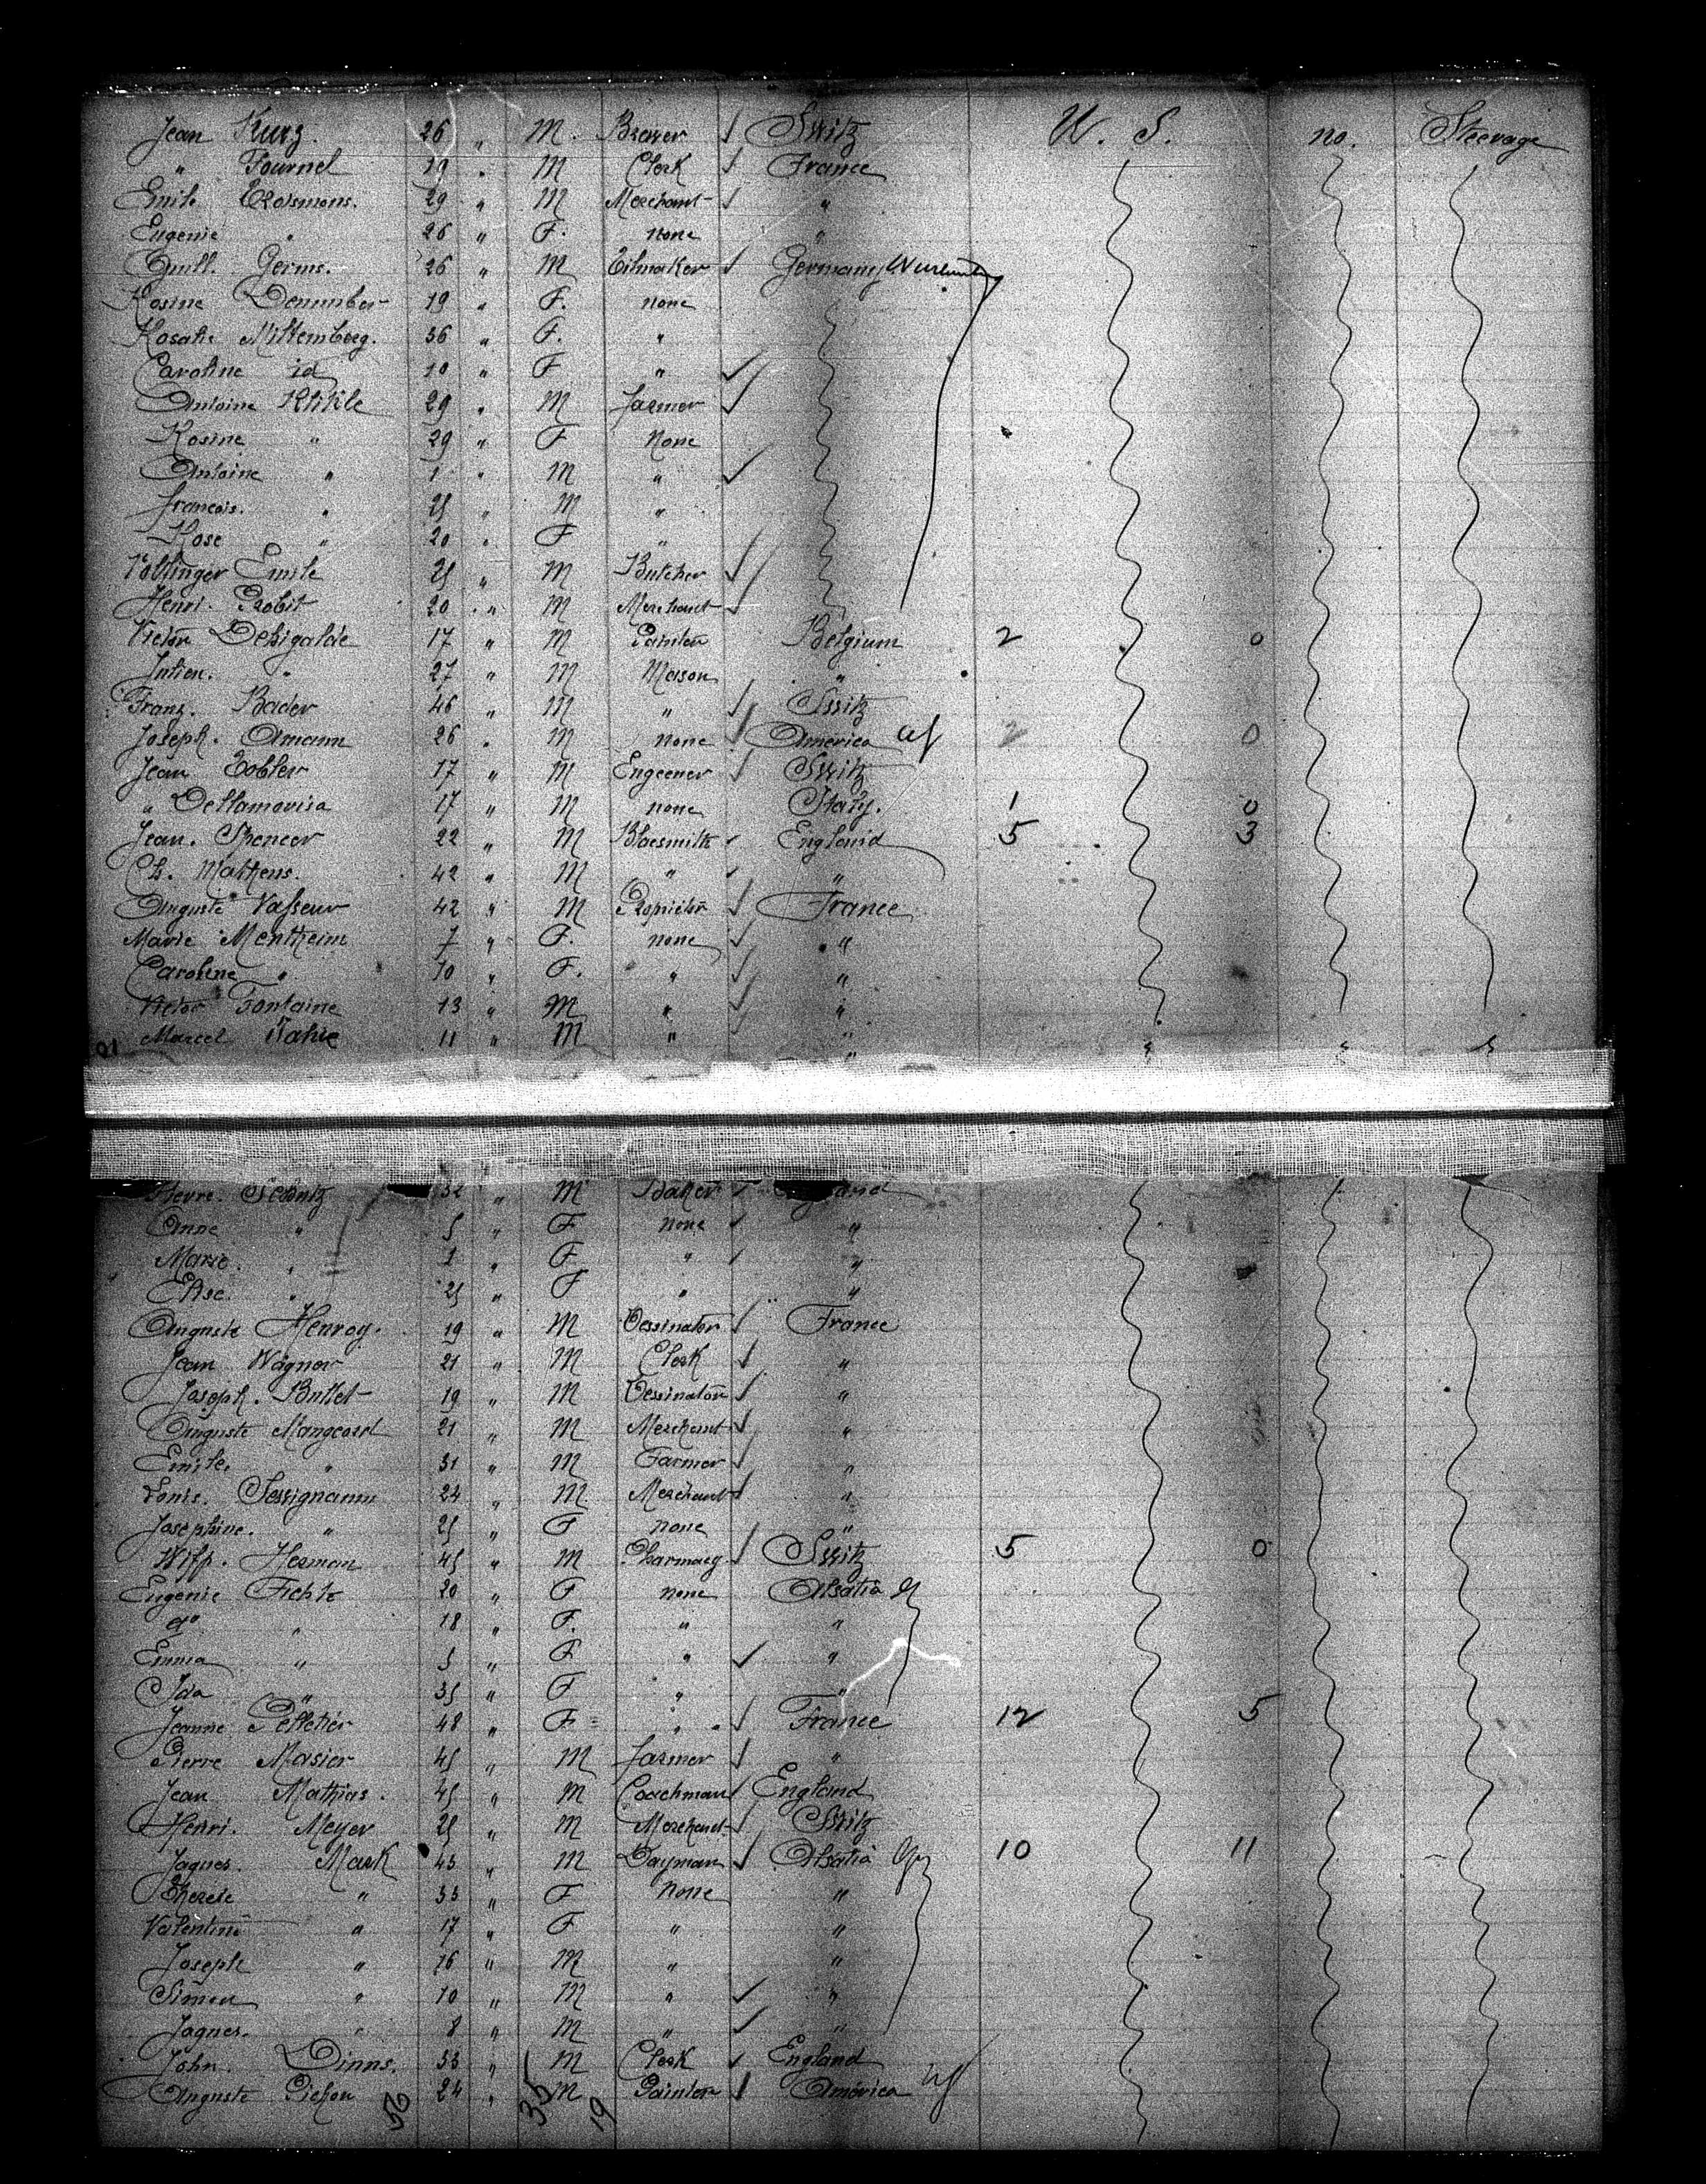 Jean Kurz. 26 " M. Brewer Switz U. S. no. Steerage
" Fournel 19 " M Clerk France
Emile 29 " M Merchant "
Eugenie " 26 " F. none "
Germs. 26 " M Germany
Rosine 19 " F. none
Rosalie Miltemberg. 36 " F. "
Caroline id 10 " F "
Antoine 29 " M farmer
Rosine " 29 " F None
Antoine " 1 " M "
francois. " 25 " M "
Rose " 20 " F "
Emile 25 " M Butcher
Henri. Probit 20 " M Merchant
Victor Desigalde 17 " M Painter Belgium 2 0
Julien. " 27 " M Mason "
Franz. Bader 46 " M " Switz
Joseph. Amann 26 " M none America 2 0
Jean Tobler 17 " M Engeener Switz
" Dellamorisa 17 " M none Italy. 1 0
Jean. Spencer 22 " M Blacsmith England 5 3
Ch. Mathens. 42 " M " "
Auguste Vasseur 42 " M Propriétor France
Marie Mentheim 7 " F. none "
Caroline " 10 " F. " "
Victor Fontaine 13 " M " "
Marcel 11 " M " "
Pierre. 32 " M Baker
Anne " 5 " F none "
Marie. " 1 " F " "
Elise. " 25 " F " "
Auguste Henroy. 19 " M Dessinator France
Jean Wagner 21 " M Clerk "
Joseph. Buttet 19 " M Dessinator "
Auguste Mangeard 21 " M Merchant "
Emile. " 31 " M Farmer "
Louis. 24 " M Merchant "
Josephine. " 25 " F none "
Herman 45 " M Pharmacy Switz 5 0
Eugenie Fichte 20 " F none Alsatia
" 18 " F. " "
Emma " 5 " F " "
Ida " 35 " F " "
Jeanne Pelletier 48 " F " France 12 5
Pierre Masier 45 " M farmer "
Jean Mathias. 45 " M Coachman England
Henri. Meyer 25 " M Merchant Switz
Jaques. Mark 43 " M Dayman Alsatia 10 11
Therese " 33 " F None "
Valentine " 17 " F " "
Joseph " 16 " M " "
Simon " 10 " M " "
Jaques. " 8 " M " "
John. Dinns. 33 " M Clerk England
Auguste Pichon 24 " M Painter America
56 35 19